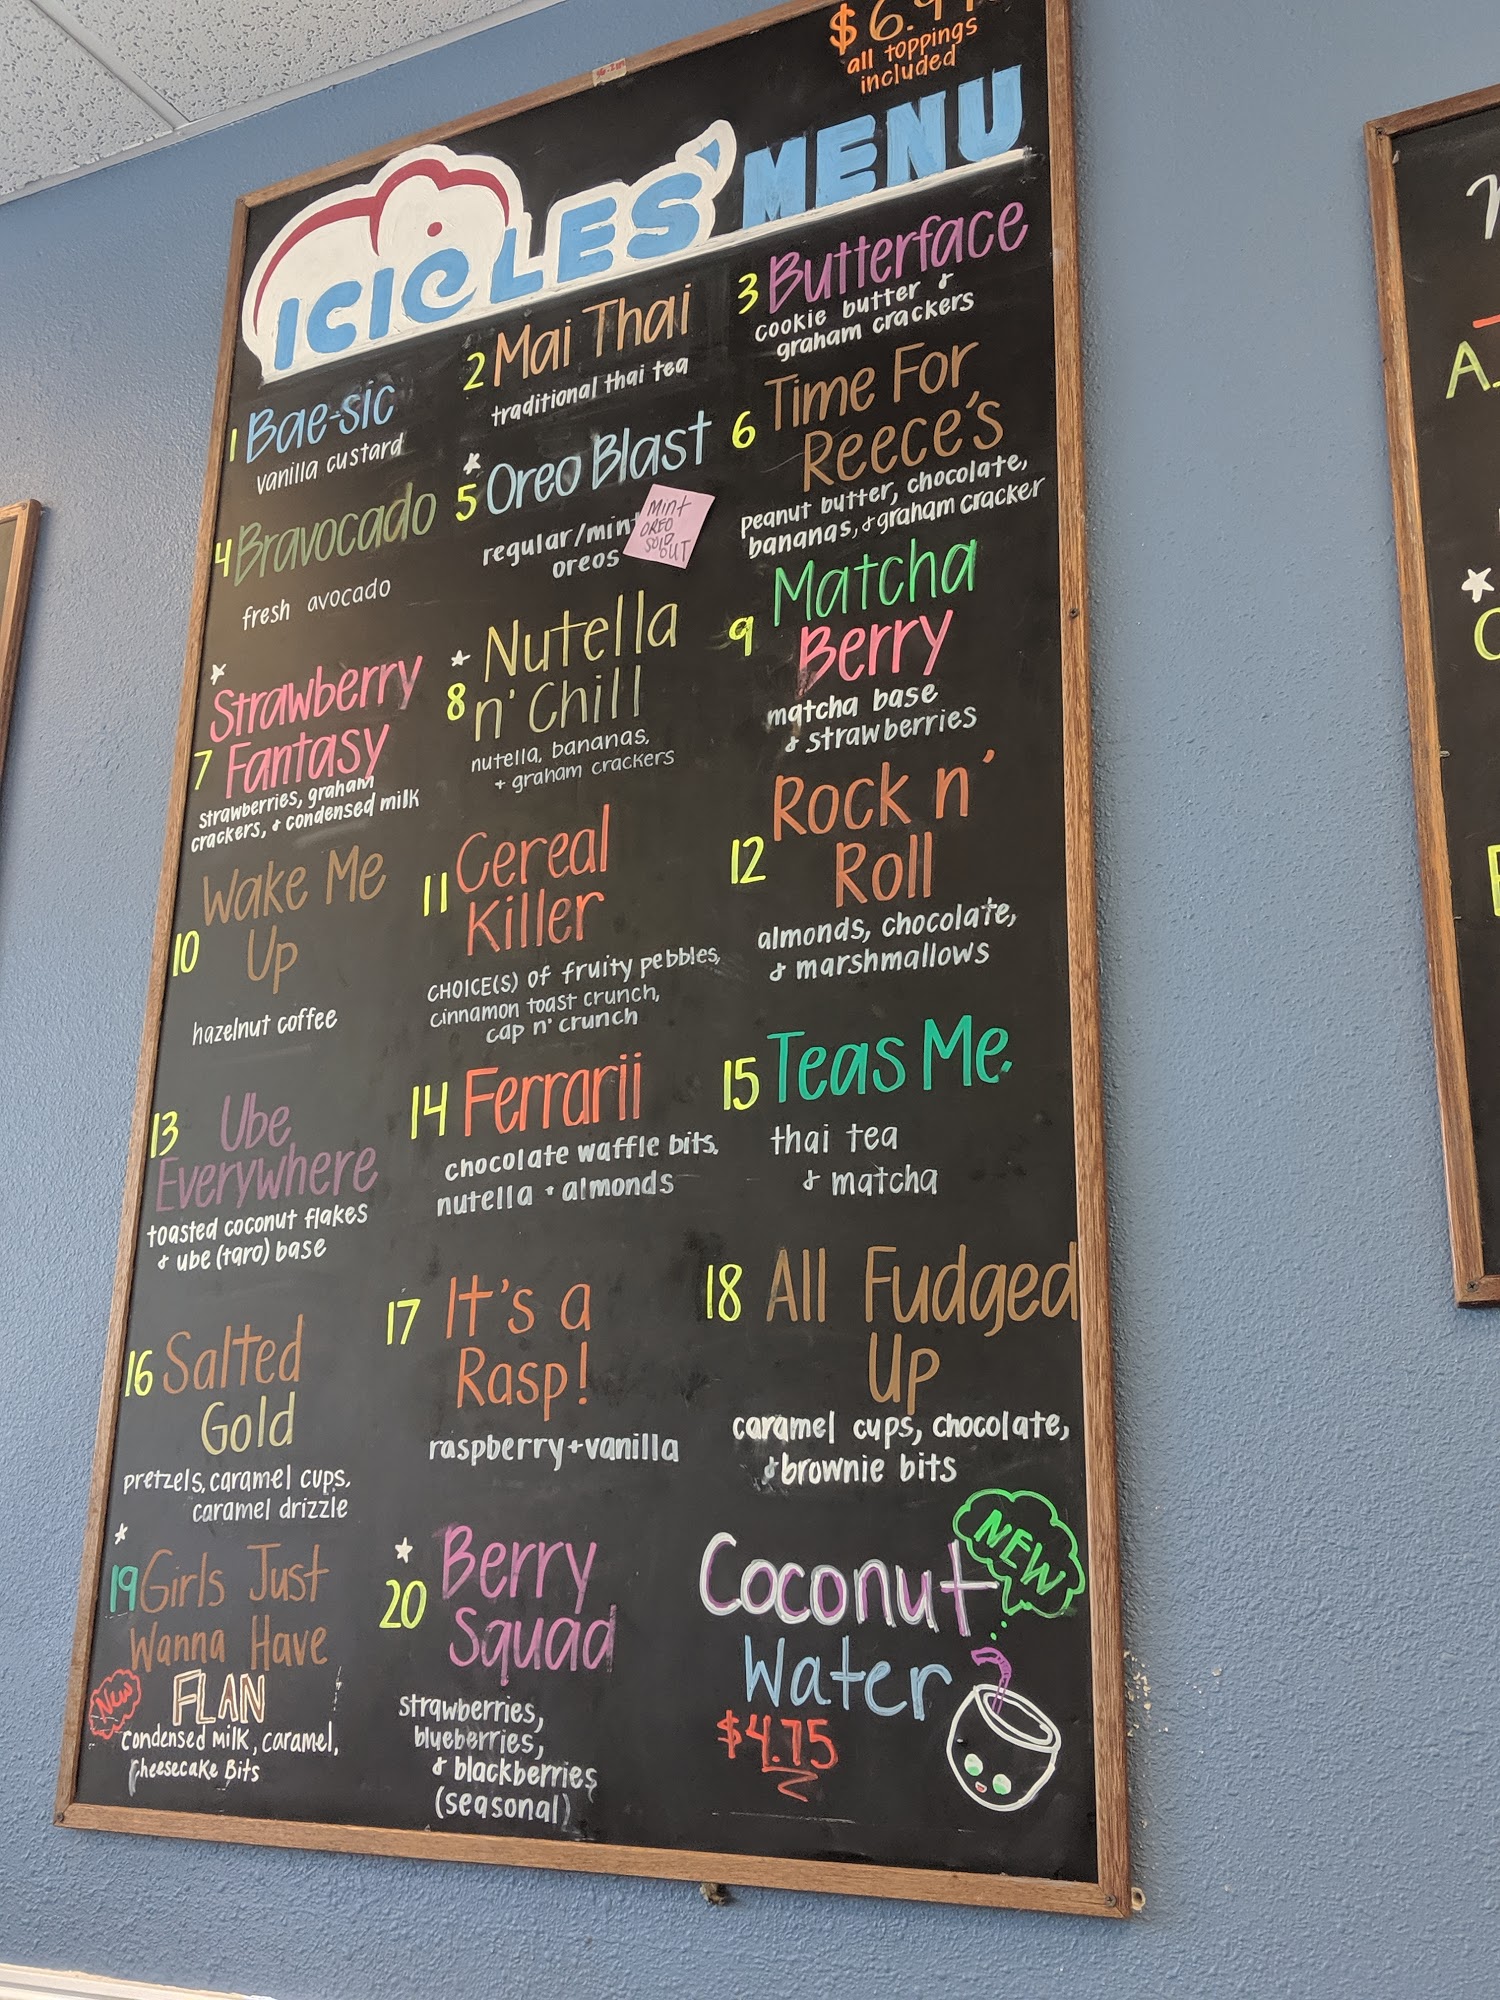 all toppings
included
ICICLES' MENU
1 Bae-sic
vanilla custard
2 Mai Thai
traditional thai tea
3 Butterface
cookie butter &
graham crackers
4 Bravocado
fresh avocado
5 Oreo Blast
regular/mint
oreos
Mint
OREO
SOLD
OUT
6 Time For
Reece's
peanut butter, chocolate,
bananas, & graham cracker
Strawberry
7 Fantasy
strawberries, graham
crackers, & condensed milk
Nutella
8 n' Chill
nutella, bananas,
+ graham crackers
Matcha
9 Berry
matcha base
& strawberries
Wake Me
10 Up
hazelnut coffee
11 Cereal
Killer
CHOICE(S) of fruity pebbles,
cinnamon toast crunch,
cap n' crunch
Rock n'
12 Roll
almonds, chocolate,
& marshmallows
13 Ube
Everywhere
toasted coconut flakes
& ube (taro) base
14 Ferrarii
chocolate waffle bits,
nutella + almonds
15 Teas Me
thai tea
& matcha
16 Salted
Gold
pretzels, caramel cups,
caramel drizzle
17 It's a
Rasp!
raspberry + vanilla
18 All Fudged
Up
caramel cups, chocolate,
& brownie bits
19 Girls Just
Wanna Have
New FLAN
condensed milk, caramel,
cheesecake Bits
20 Berry
Squad
strawberries,
blueberries,
& blackberries
(seasonal)
NEW
Coconut
Water
$4.75